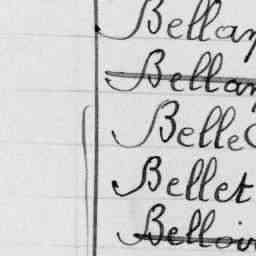 Bellan
Bellan
Belle
Bellet
Belloin